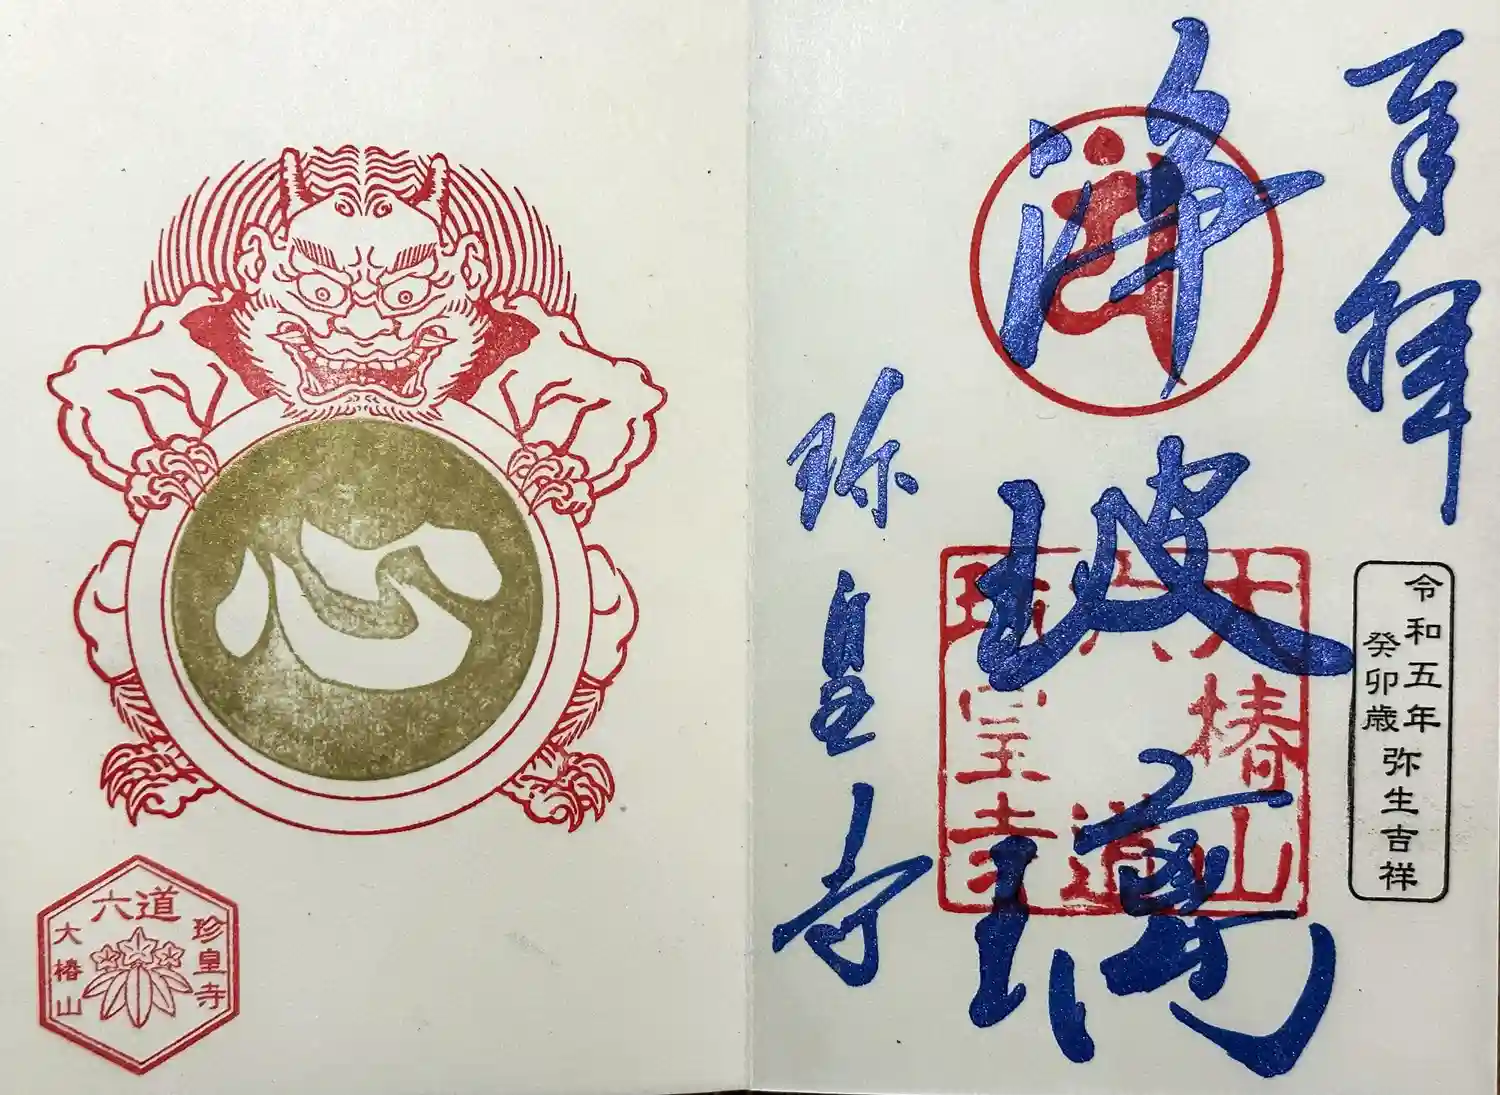 奉拝
令和五年
癸卯歳
弥生吉祥
浄玻璃
大椿山
六道
珍皇寺
珍皇寺
心
六道
珍皇寺
大椿山